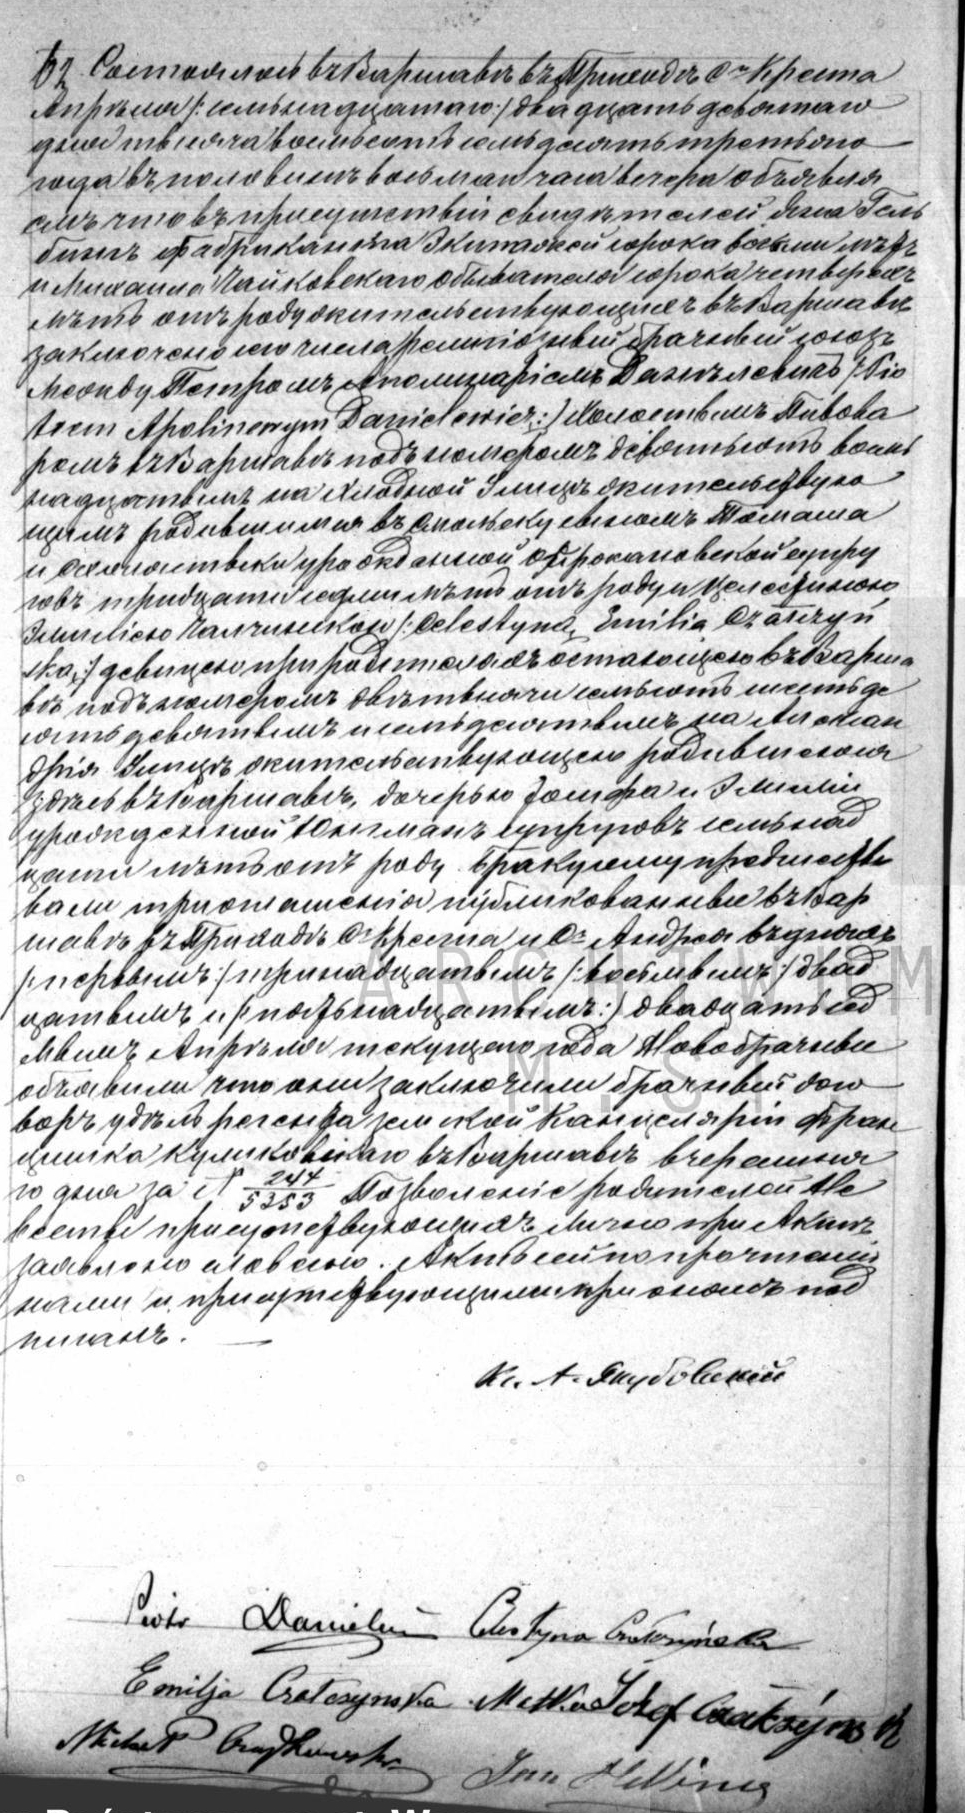 62. Состоялось въ Варшавѣ въ Приходѣ Сго Креста
Апрѣля /:семьнадцатаго:/ двадцать девятаго
дня тысяча восемьсотъ семьдесятъ третьяго
года въ половинѣ восьмаго часа вечера объявля
емъ что въ присутствіи свидѣтелей Яна Гель
бингъ фабриканта экипажей сорока восьми лѣтъ
и Михаила Чайковскаго обывателя сорока четырехъ
лѣтъ отъ роду жительствующихъ въ Варшавѣ
заключено сего числа религіозный брачный союзъ
между Петромъ Аполинаріемъ Данѣлевичъ /:Pio
trem Apolinarym Danielewicz:/ холостымъ Пивова
ромъ въ Варшавѣ подъ номеромъ девятьсотъ восемь
надцатымъ на Хлодной Улицѣ жительствую
щимъ родившимся въ сыномъ Томаша
и урожденной супру
говъ тридцати семи лѣтъ отъ роду и Целестиною
Эмиліею Чатчинскою /:Celestyną Emilią Czatczyń
ską:/ девицею при родителяхъ остающеюся въ Варша
вѣ подъ номеромъ двѣ тысячи семьсотъ шестьде
сятъ девятымъ и семьдесятымъ на Алексан
дрія Улицѣ жительствующею родившеюся
здѣсь въ Варшавѣ, дочерью Іосифа и Эмиліи
урожденной Юнгманъ супруговъ семьнад
цати лѣтъ отъ роду. Браку сему предшество
вали три оглашенія публикованные въ Вар
шавѣ въ Приходѣ Сго Креста и Сго Андрея въ дняхъ
/:первымъ:/ тринадцатымъ /:восьмымъ:/ двад
цатымъ и /:пятьнадцатымъ:/ двадцать седь
мымъ Апрѣля текущаго года Новобрачные
объявили что они заключили брачный дого
воръ у дѣлъ регента земской Канцеляріи Фран
цишка Куликовскаго въ Варшавѣ вчерашня
го дня за N 244/5353 Позволеніе родителей Не
весты присутствующихъ лично при Актѣ
заявлено словесно. Актъ сей по прочтеніи
нами и присутствующими при ономъ под
писанъ.
Кс. А. Якубовскій
ARCHIWUM
M S
Piotr Danielewicz Celestyna Czatczyńska
Emilja Czatczynska Matka Józef Czatczyński
Michał Czajkowski Jan Helbing